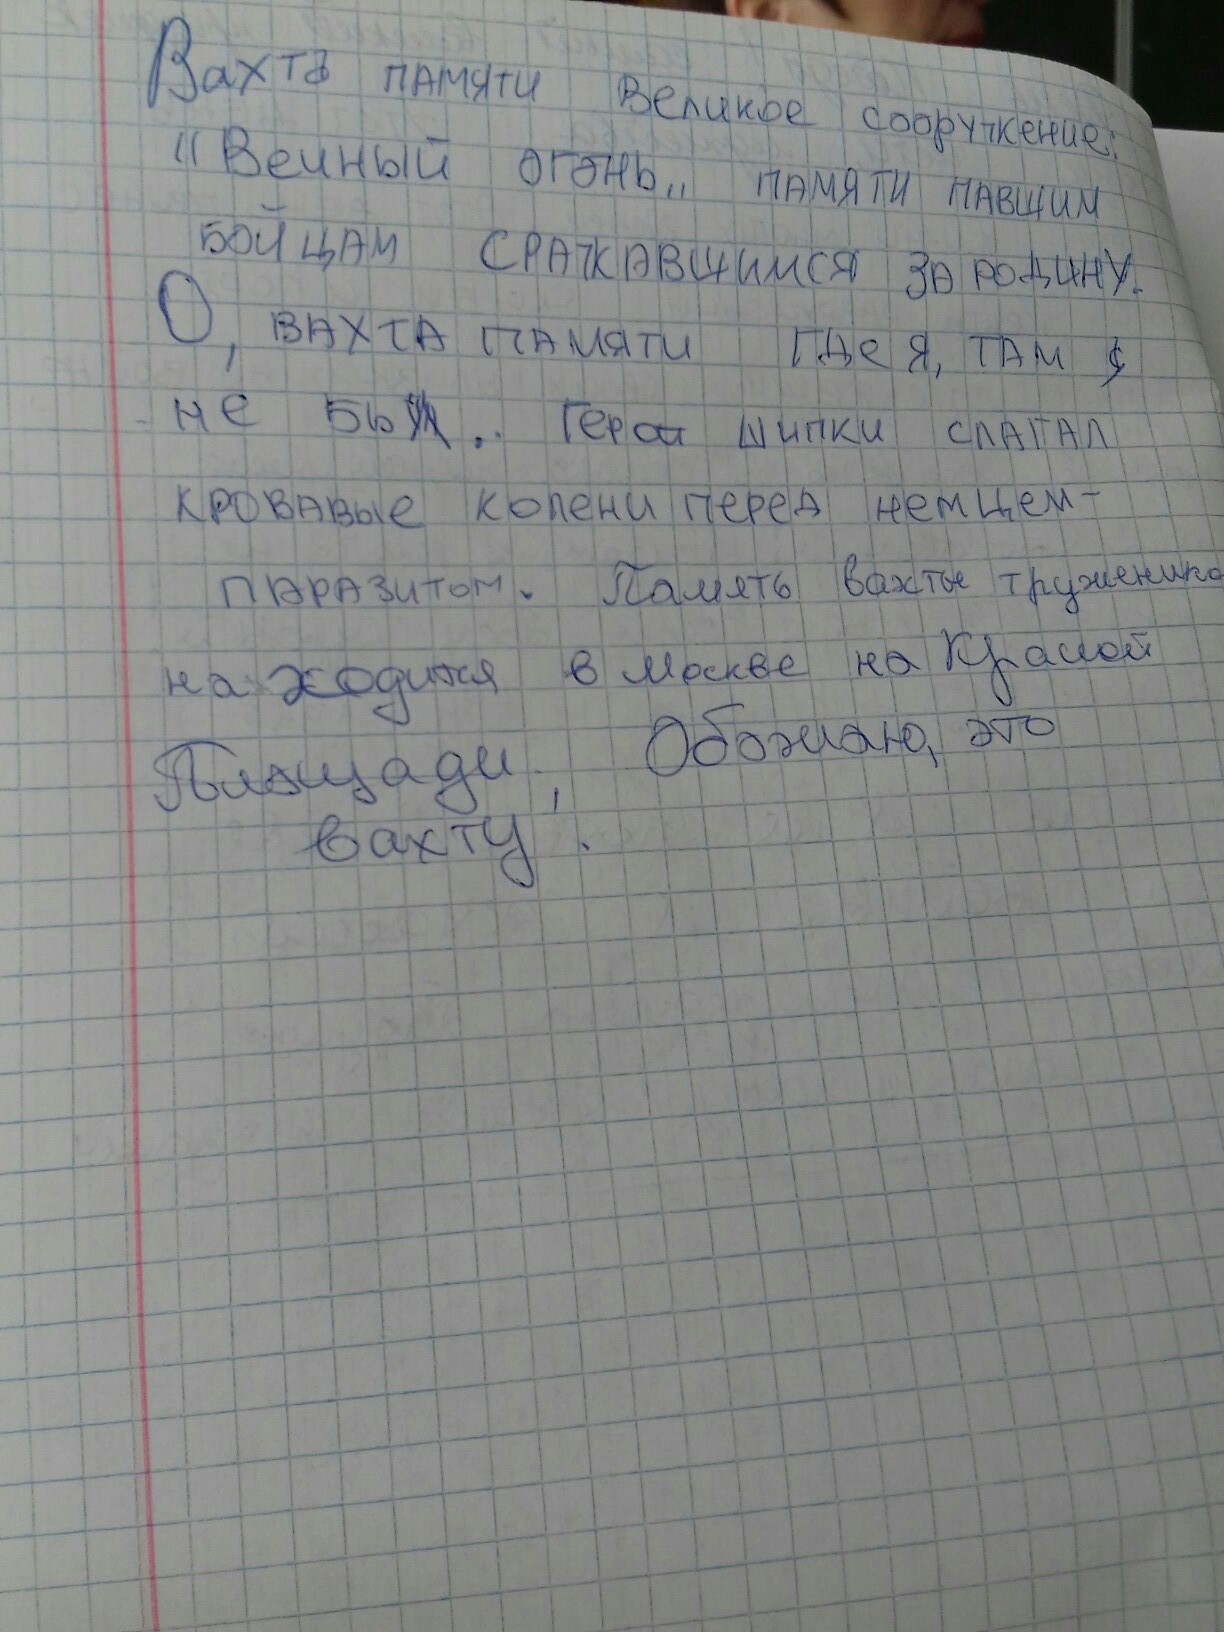 Вахта памяти великое сооружение:
"Вечный огонь" памяти павшим
бойцам сражавшимся за родину.
О, вахта памяти где я, там
не бы.. Герои шипки слагал
кровавые колени перед немцем-
паразитом. Память вахты труженика
находится в Москве на Красной
Площади, Обожаю, это
вахту.